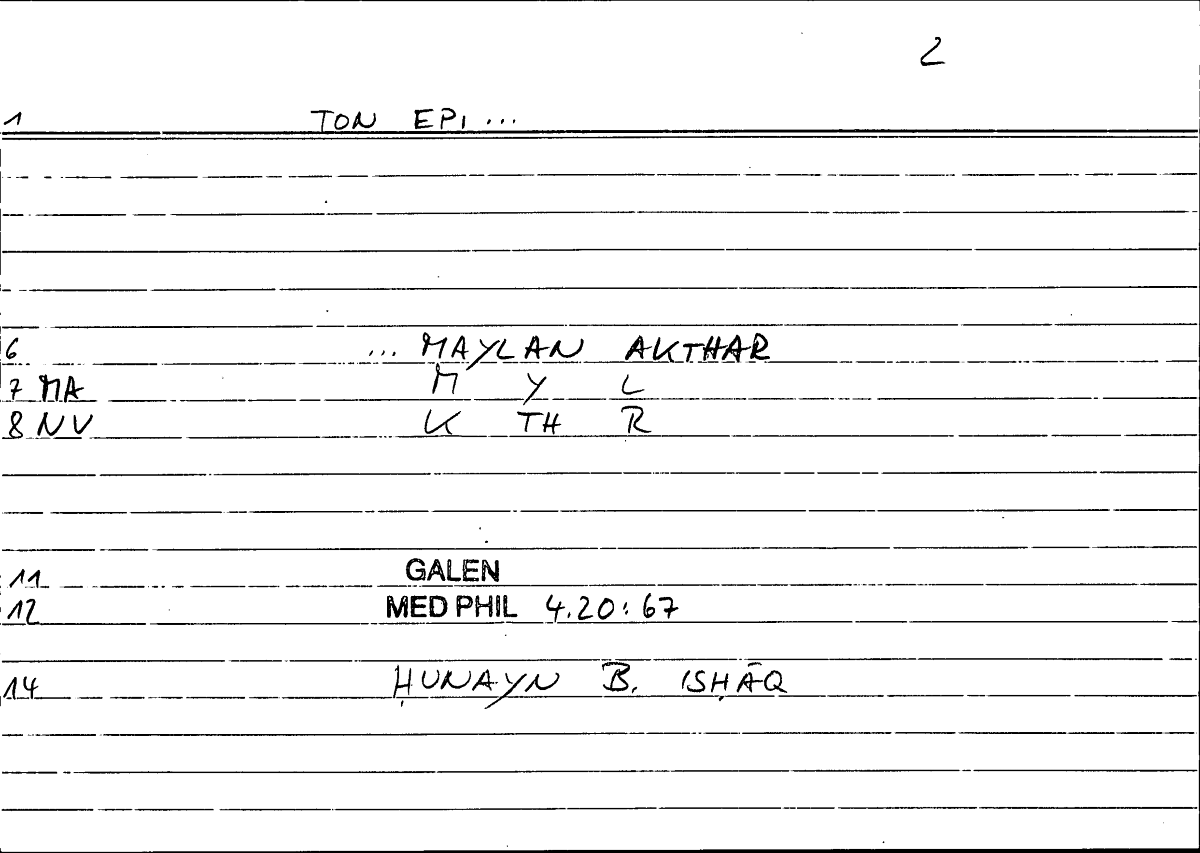 2
1 TON EPI ...
6 ... MAYLAN AKTHAR
7 MA M Y L
8 NV K TH R
11 GALEN
12 MED PHIL 4.20:67
14 ḤUNAYN B. ISḤĀQ